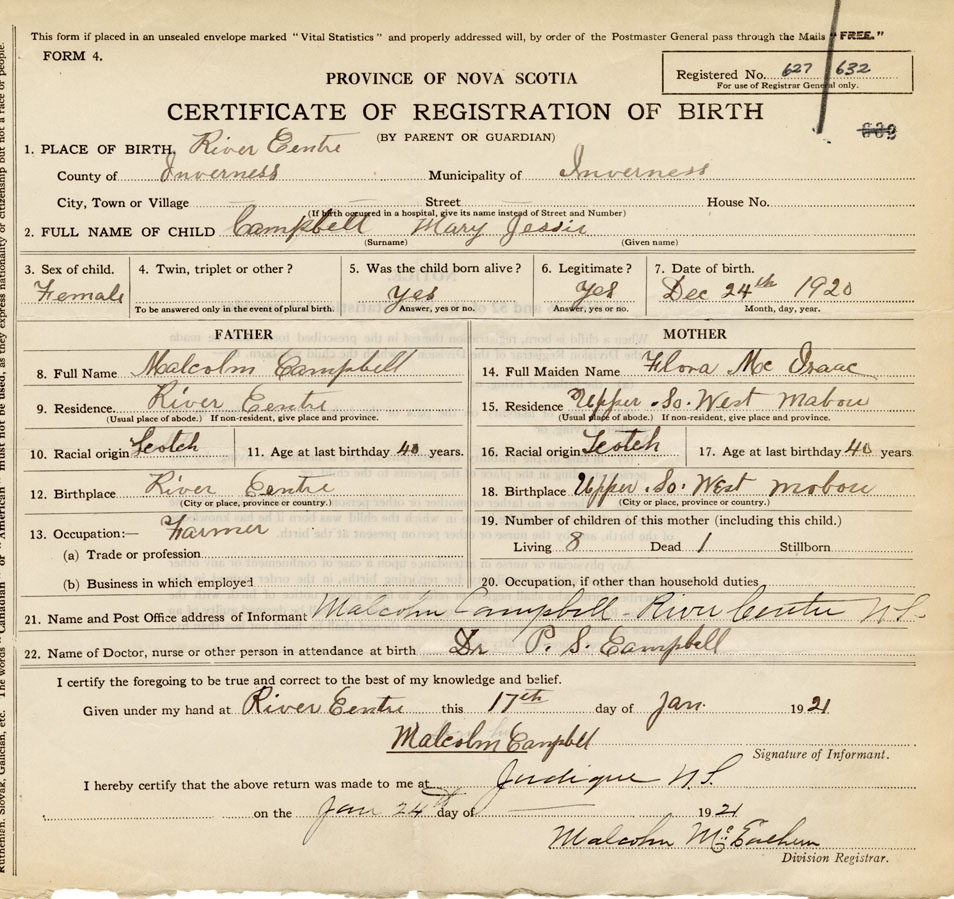 This form if placed in an unsealed envelope marked "Vital Statistics" and properly addressed will, by order of the Postmaster General pass through the Mails "FREE."
FORM 4.
PROVINCE OF NOVA SCOTIA
Registered No. 627 632
For use of Registrar General only.
CERTIFICATE OF REGISTRATION OF BIRTH
(BY PARENT OR GUARDIAN)
1. PLACE OF BIRTH. River Centre
County of Inverness Municipality of Inverness
City, Town or Village Street House No.
(If birth occurred in a hospital, give its name instead of Street and Number)
2. FULL NAME OF CHILD Campbell Mary Jessie
(Surname) (Given name)
3. Sex of child. 4. Twin, triplet or other? 5. Was the child born alive? 6. Legitimate? 7. Date of birth.
Female Yes Yes Dec 24th 1920
To be answered only in the event of plural birth. Answer, yes or no. Answer, yes or no. Month, day, year.
FATHER MOTHER
8. Full Name Malcolm Campbell
14. Full Maiden Name Flora Mc Isaac
9. Residence. River Centre
(Usual place of abode.) If non-resident, give place and province.
15. Residence Upper So. West Mabou
(Usual place of abode.) If non-resident, give place and province.
10. Racial origin Scotch 11. Age at last birthday 40 years.
16. Racial origin Scotch 17. Age at last birthday 40 years
12. Birthplace River Centre
(City or place, province or country.)
18. Birthplace Upper So. West Mobou
(City or place, province or country.)
13. Occupation:— Farmer
(a) Trade or profession
(b) Business in which employed
19. Number of children of this mother (including this child.)
Living 8 Dead 1 Stillborn
20. Occupation, if other than household duties
21. Name and Post Office address of Informant Malcolm Campbell - River Centre N.S.
22. Name of Doctor, nurse or other person in attendance at birth Dr P. S. Campbell
I certify the foregoing to be true and correct to the best of my knowledge and belief.
Given under my hand at River Centre this 17th day of Jan. 1921
Malcolm Campbell
Signature of Informant.
I hereby certify that the above return was made to me at Judique N.S.
on the Jan 24th day of 1921
Malcolm McEachern
Division Registrar.
Ruthenien, Slovak, Galician, etc. The words "Canadian" or "American" must not be used, as they express nationality or citizenship but not a race or people.